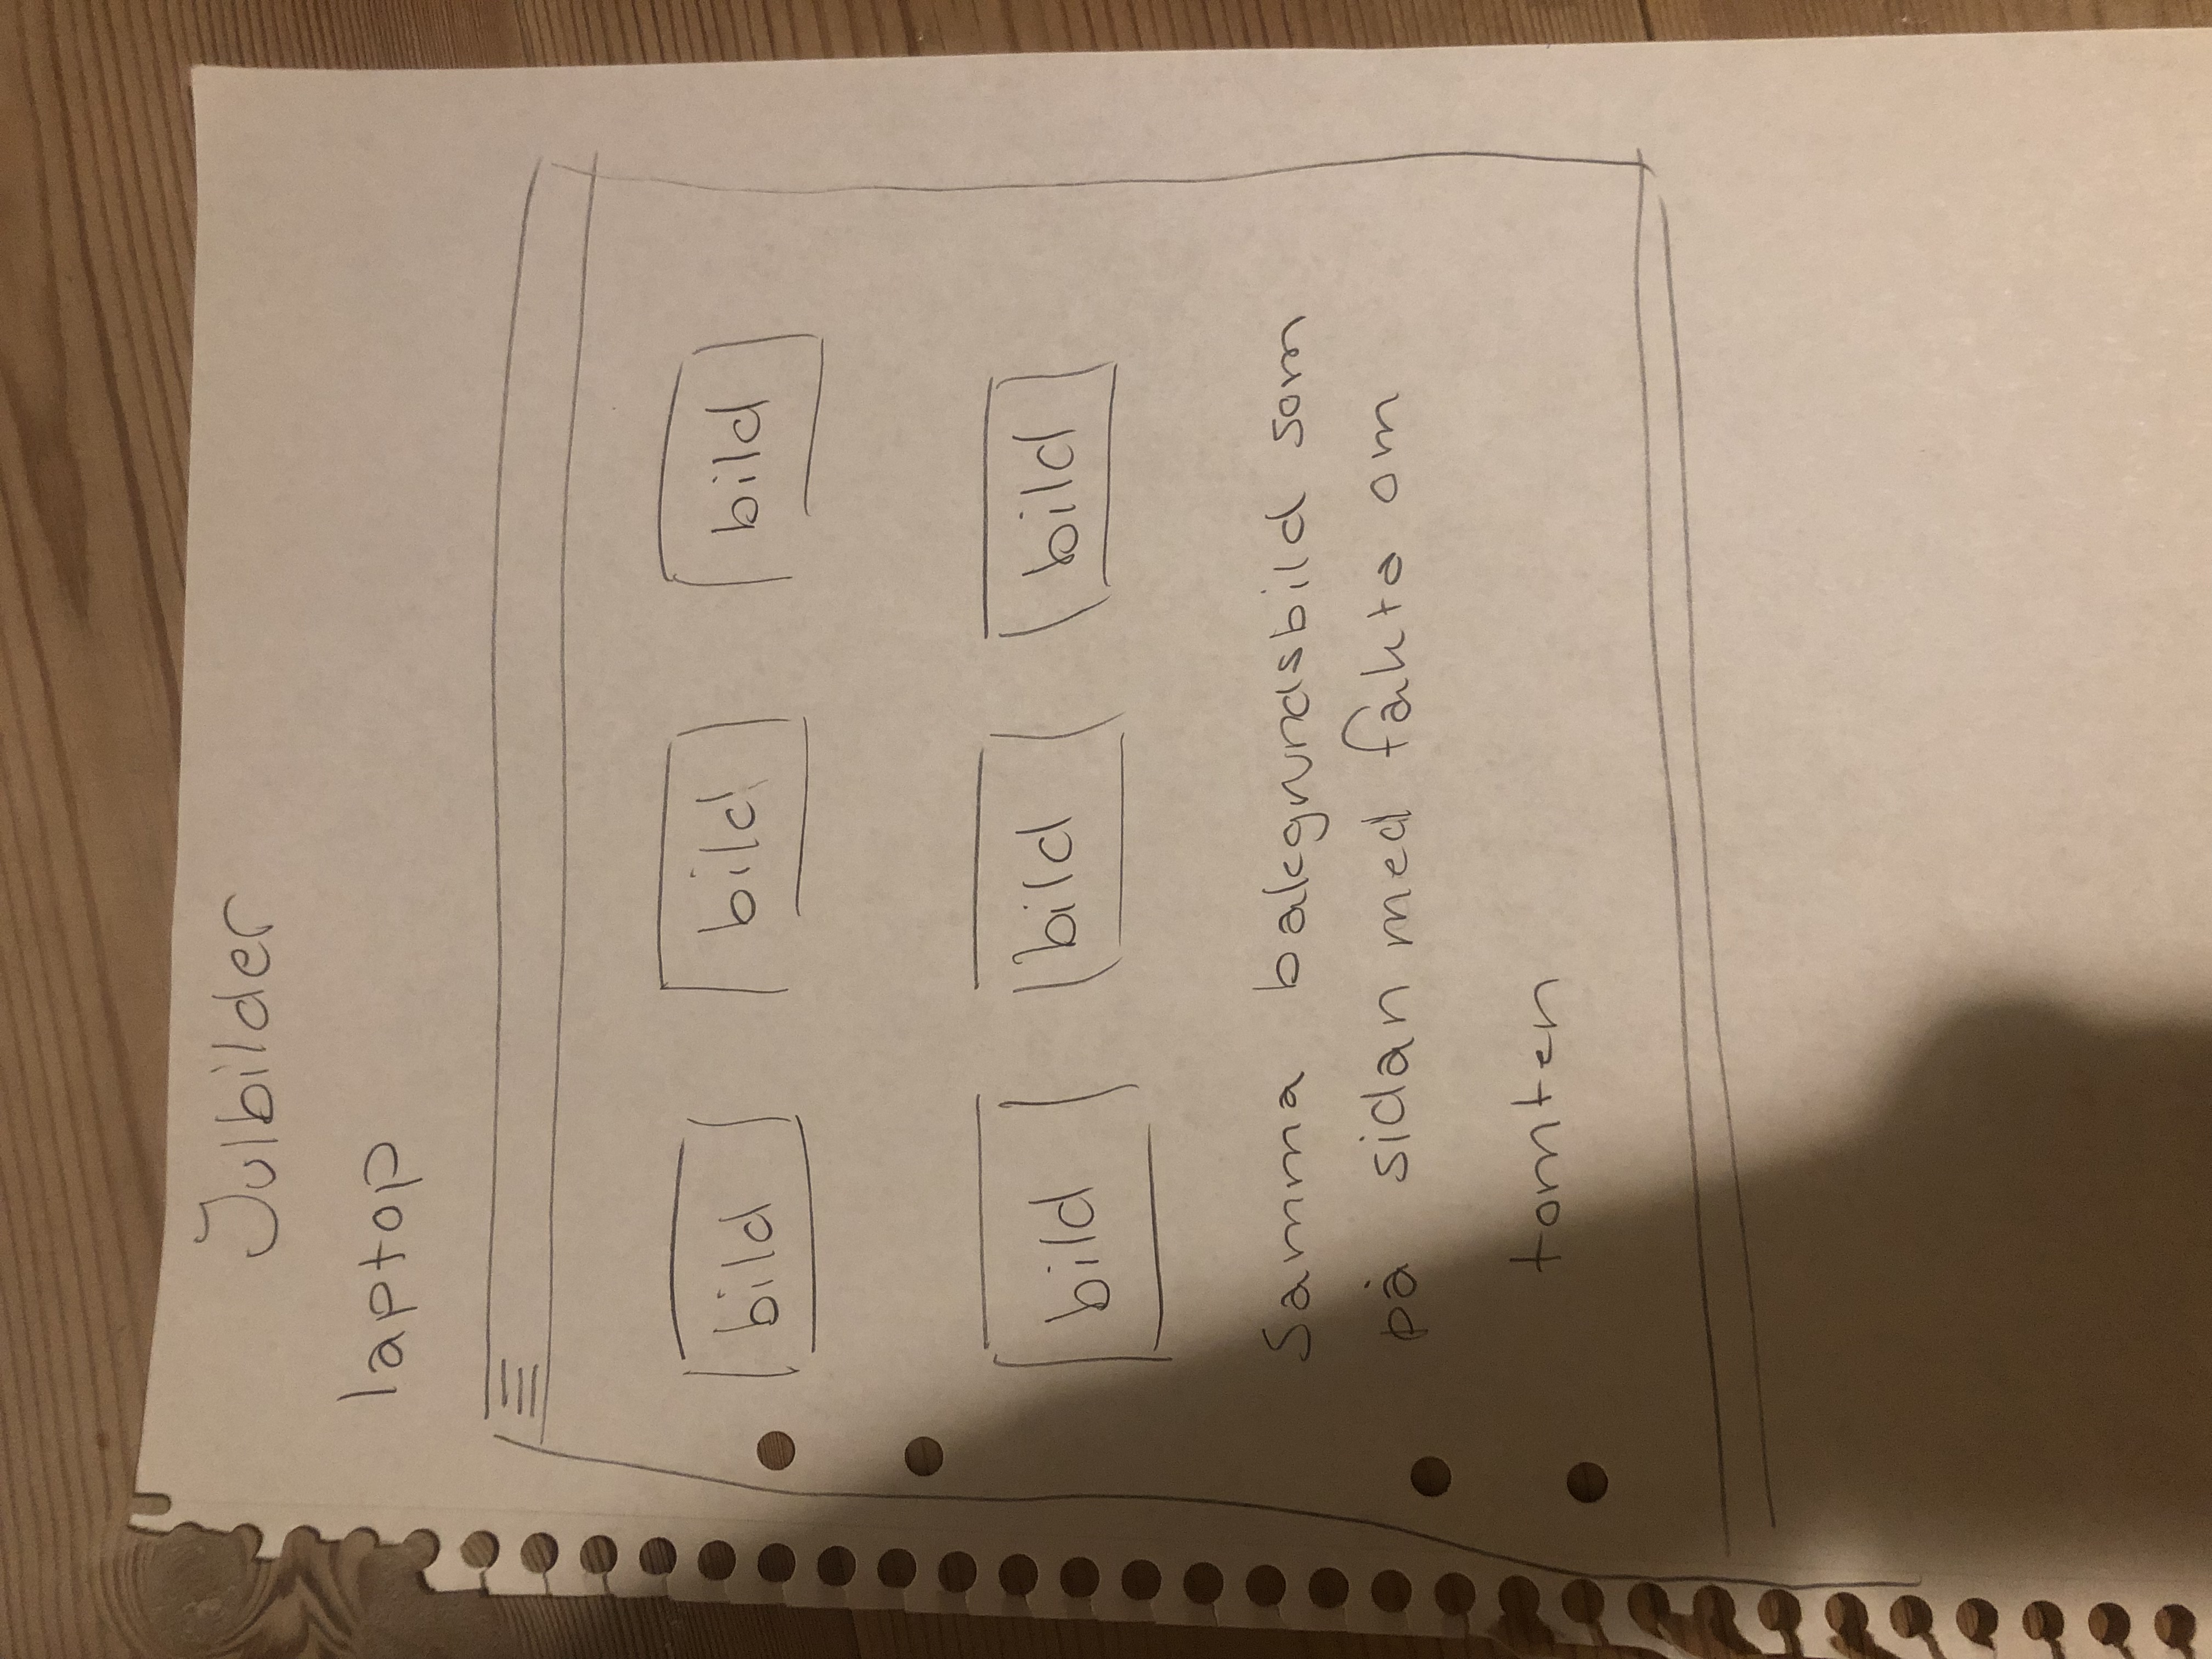 Julbilder
laptop
bild bild bild
bild bild bild
Samma bakgrundsbild som
på sidan med fakta om
tomten